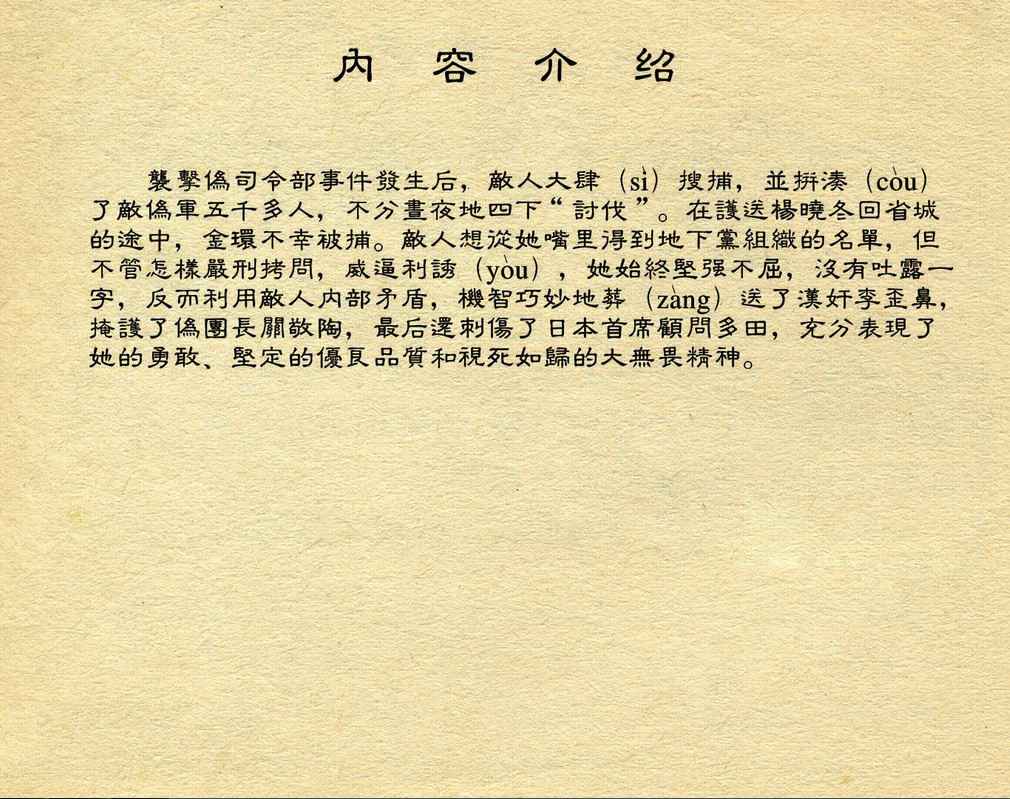 內容介绍
襲擊僞司令部事件發生后，敵人大肆（sì）搜捕，並拼湊（còu）
了敵僞軍五千多人，不分晝夜地四下“討伐”。在護送楊曉冬回省城
的途中，金環不幸被捕。敵人想從她嘴里得到地下黨組織的名單，但
不管怎樣嚴刑拷問，威逼利誘（yòu），她始終堅强不屈，沒有吐露一
字，反而利用敵人内部矛盾，機智巧妙地葬（zàng）送了漢奸李歪鼻，
掩護了僞團長關敬陶，最后還刺傷了日本首席顧問多田，充分表現了
她的勇敢、堅定的優良品質和視死如歸的大無畏精神。